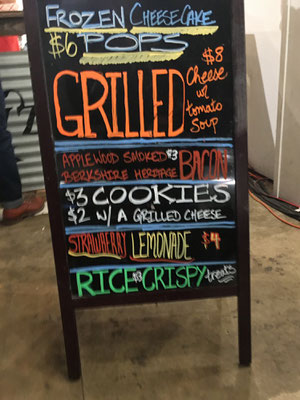 FROZEN CHEESECAKE
$6 POPS
GRILLED
$8
Cheese
w/
tomato
Soup
APPLEWOOD SMOKED $3
BERKSHIRE HERITAGE
BACON
$3 COOKIES
$2 W/ A GRILLED CHEESE
STRAWBERRY LEMONADE $4
RICE $3 CRISPY treats